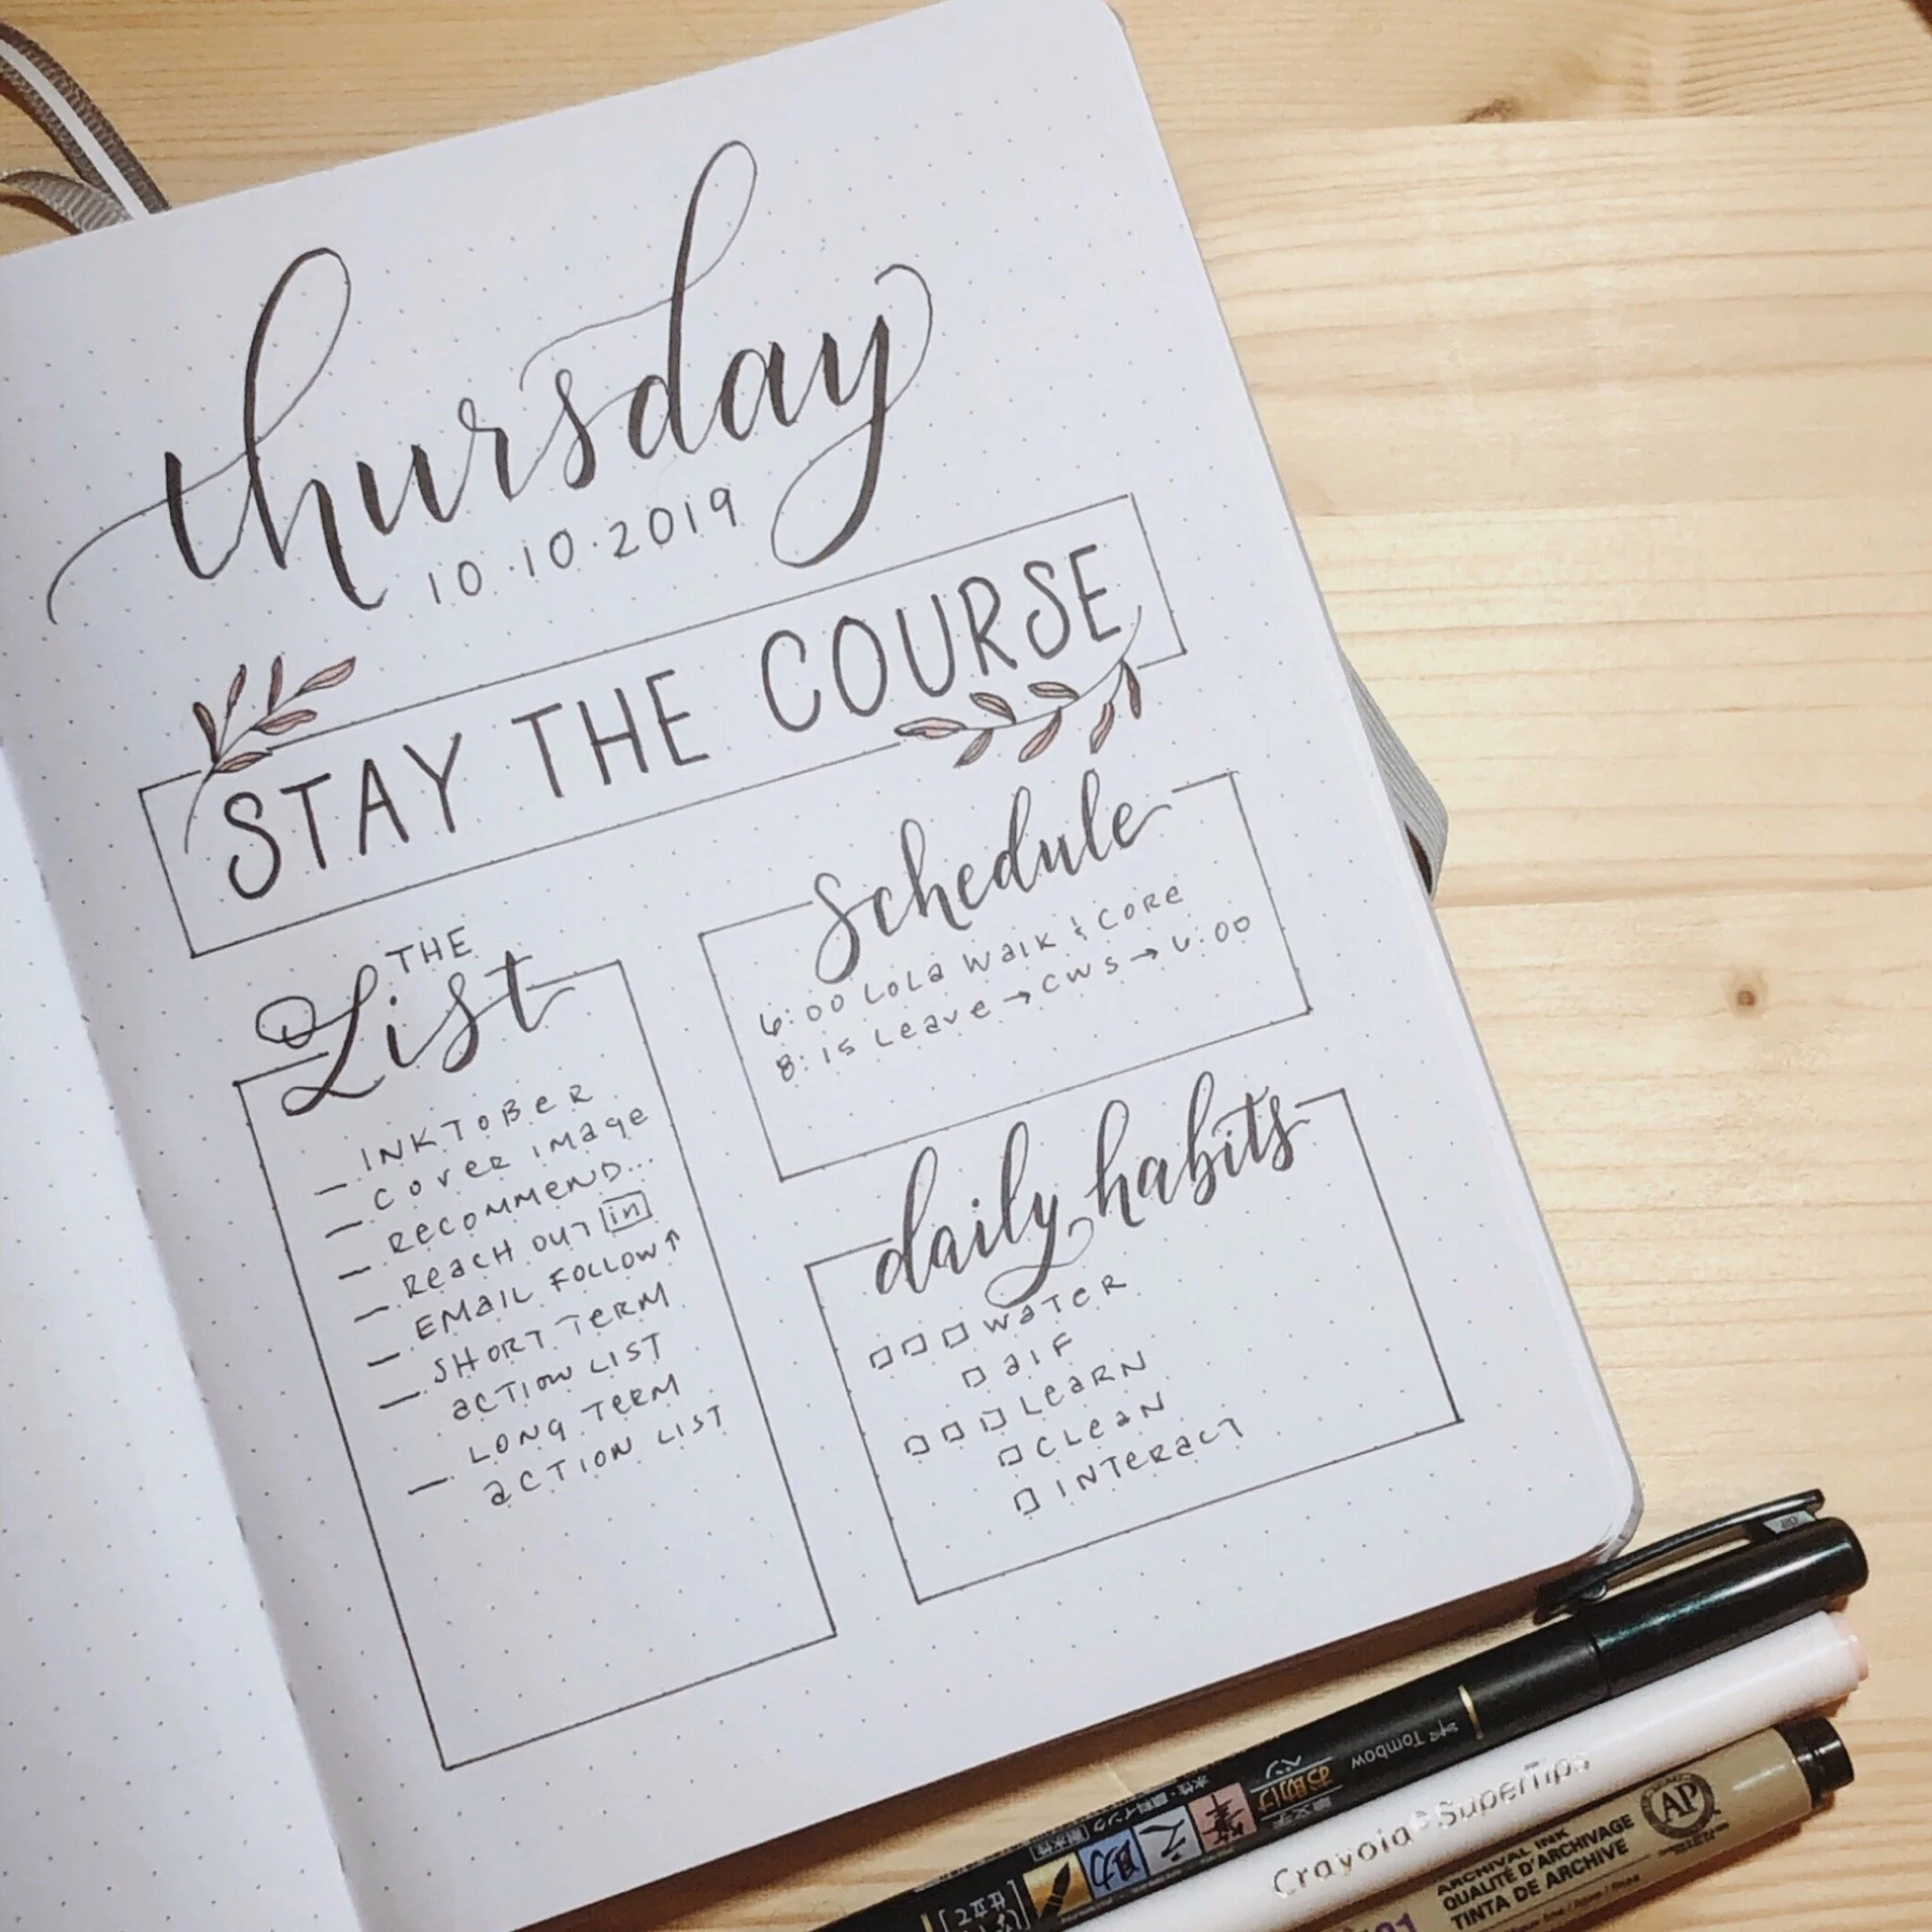 thursday
10.10.2019
STAY THE COURSE
THE
List
— INKTOBER
— COVER IMAGE
— RECOMMEND...
— REACH OUT in
— EMAIL FOLLOW ↑
— SHORT TERM
ACTION LIST
— LONG TERM
ACTION LIST
Schedule
6:00 LOLA WALK & CORE
8:15 LEAVE → CWS → 6:00
daily habits
□□□ WATER
□ AIF
□□□ LEARN
□ CLEAN
□ INTERACT
Tombow
お助け
べ
筆
之
助
仕立て
Crayola SuperTips
AP
ARCHIVAL INK
QUALITÉ D'ARCHIVAGE
TINTA DE ARCHIVE